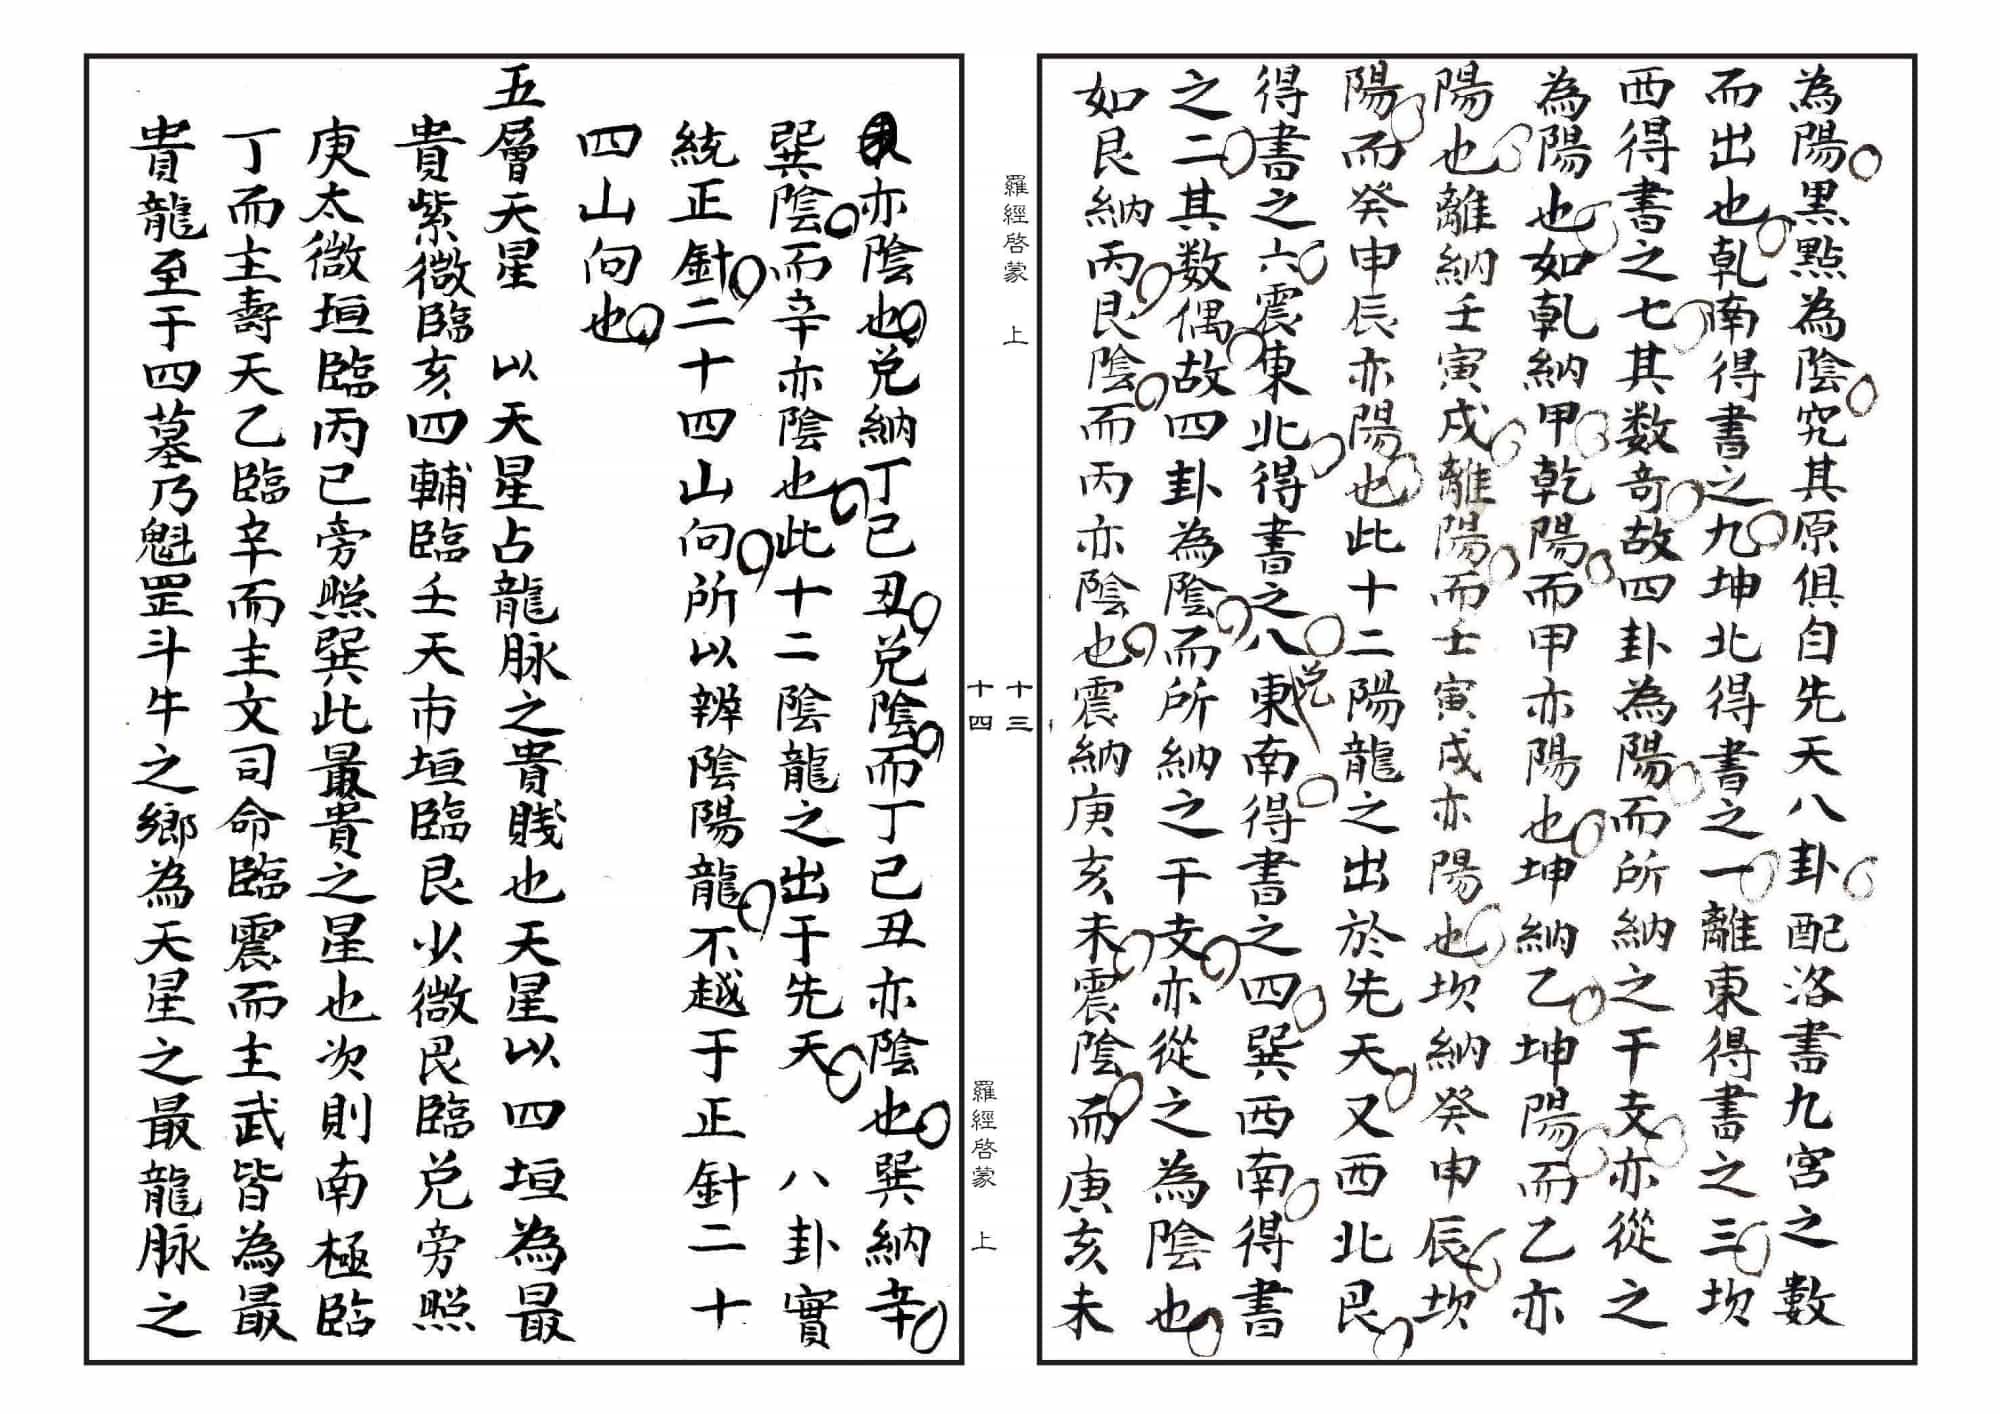 為陽黑點為陰究其原俱自先天八卦配洛書九宮之數
而出也乹南得書之九坤北得書之一離東得書之三坎
西得書之七其数奇故四卦為陽而所納之干支亦從之
為陽也如乹納甲乾陽而甲亦陽也坤納乙坤陽而乙亦
陽也離納壬寅戌離陽而壬寅戌亦陽也坎納癸申辰坎
陽而癸申辰亦陽也此十二陽龍之出於先天又西北艮
得書之六震東北得書之八兌東南得書之四巽西南得書
之二其数偶故四卦為陰而所納之干支亦從之為陰也
如艮納丙艮陰而丙亦陰也震納庚亥未震陰而庚亥未
羅經啓蒙 上
十三
十四
羅經啓蒙 上
亦陰也兌納丁已丑兌陰而丁已丑亦陰也巽納辛
巽陰而辛亦陰也此十二陰龍之出于先天 八卦實
統正針二十四山向所以辨陰陽龍不越于正針二十
四山向也
五層天星 以天星占龍脉之貴賤也天星以四垣為最
貴紫微臨亥四輔臨壬天市垣臨艮少微艮臨兌旁照
庚太微垣臨丙已旁照巽此最貴之星也次則南極臨
丁而主壽天乙臨辛而主文司命臨震而主武皆為最
貴龍至于四墓乃魁罡斗牛之鄉為天星之最龍脉之